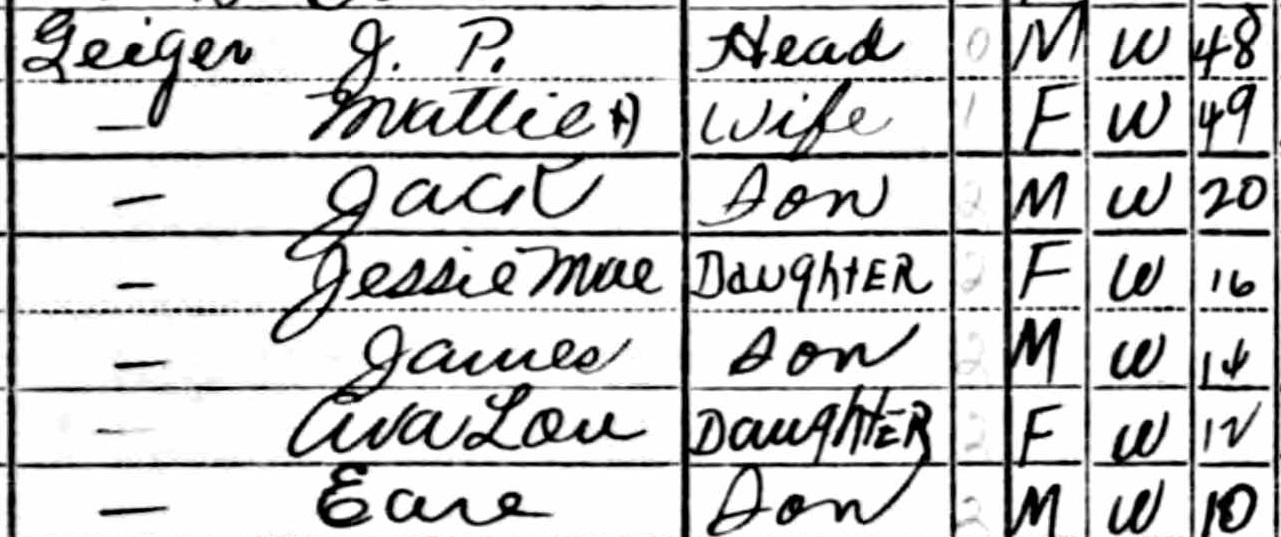 Geiger J. P. Head 0 M W 48
— Mattie Ⓧ Wife 1 F W 49
— Jack Son 2 M W 20
— Jessie Mae Daughter 2 F W 16
— James Son 2 M W 14
— Ava Lou Daughter 2 F W 12
— Son 2 M W 10